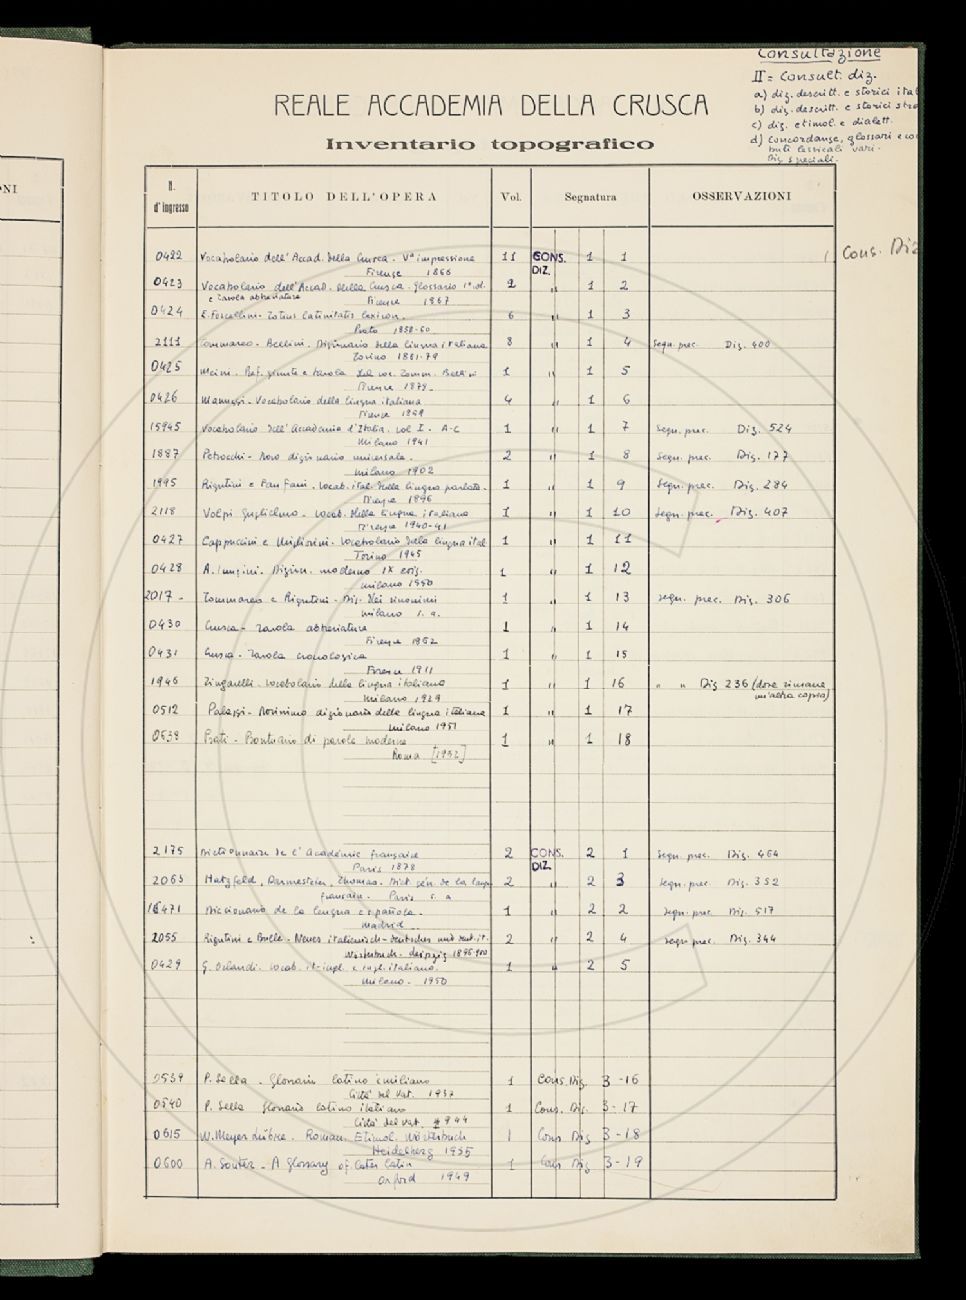 Consultazione
II = Consult. diz.
a) diz. descritt. e storici ital
b) diz. descritt. e storici stra
c) diz. etimol. e dialett.
d) concordanze, glossari e con
buti lessicali vari.
Diz. speciali.
REALE ACCADEMIA DELLA CRUSCA
Inventario topografico
NI
N. d'ingresso TITOLO DELL'OPERA Vol. Segnatura OSSERVAZIONI
Cons. Diz
0422 Vocabolario dell'Accad. della Crusca. Vª impressione 11 CONS. DIZ. 1 1
Firenze 1866
0423 Vocabolario dell'Accad. della Crusca. Glossario 2 " 1 2
e tavola abbreviature Firenze 1867
0424 E. Forcellini. Totius latinitatis lexicon. 6 " 1 3
Prato 1858-60
2111 Tommaseo - Bellini. Dizionario della lingua italiana 8 " 1 4 Segn. prec. Diz. 400
Torino 1861-79
0425 Meini. Rif. giunte e tavola del voc. Tomm. Bellini 1 " 1 5
Firenze 1879.
0426 Manuzzi - Vocabolario della lingua italiana 4 " 1 6
Firenze 1859
15945 Vocabolario dell'Accademia d'Italia. vol I. A-C 1 " 1 7 Segn. prec. Diz. 524
Milano 1941
1887 Petrocchi - Novo dizionario universale. 2 " 1 8 Segn. prec. Diz. 177
Milano 1902
1995 Rigutini e Fanfani. Vocab. ital. della lingua parlata. 1 " 1 9 Segn. prec. Diz. 284
Firenze 1896
2118 Volpi Guglielmo. Vocab. della lingua italiana 1 " 1 10 Segn. prec. Diz. 407
Firenze 1940-41
0427 Cappuccini e Migliorini. Vocabolario della lingua ital. 1 " 1 11
Torino 1945
0428 A. Panzini. Dizion. moderno IX ediz. 1 " 1 12
Milano 1950
2017 - Tommaseo e Rigutini - Diz. dei sinonimi 1 " 1 13 segn. prec. Diz. 306
Milano s. a.
0430 Crusca - Tavola abbreviature 1 " 1 14
Firenze 1952
0431 Crusca - Tavola cronologica 1 " 1 15
Firenze 1911
1946 Zingarelli. Vocabolario della lingua italiana 1 " 1 16 " " Diz 236 (dove rimane
Milano 1929 un'altra copia)
0512 Palazzi - Novissimo dizionario della lingua italiana 1 " 1 17
Milano 1951
0538 Prati - Prontuario di parole moderne 1 " 1 18
Roma [1952]
2175 Dictionnaire de l'Académie française 2 CONS. DIZ. 2 1 Segn. prec. Diz. 464
Paris 1878
2063 Hatzfeld, Darmesteter, Thomas. Dict. gén. de la langue 2 " 2 3 segn. prec. Diz. 352
française. Paris s. a
16471 Diccionario de la lengua española. 1 " 2 2 segn. prec. Diz. 517
Madrid
2055 Rigutini e Bulle - Neues italienisch-deutsches und deut.-it. 2 " 2 4 segn. prec. Diz. 344
Wörterbuch. Leipzig 1896-900
0429 G. Orlandi. Vocab. it-ingl. e ingl. italiano. 1 " 2 5
Milano. 1950
0539 P. Sella - Glossario latino emiliano 1 Cons. Diz. 3 - 16
Città del Vat. 1937
0540 P. Sella Glossario latino italiano 1 Cons. Diz. 3 - 17
Città del Vat. 1944
0615 W. Meyer Lübke. Roman. Etimol. Wörterbuch 1 Cons Diz 3 - 18
Heidelberg 1935
0600 A. Souter - A Glossary of Later Latin 1 Cons Diz 3 - 19
Oxford 1949